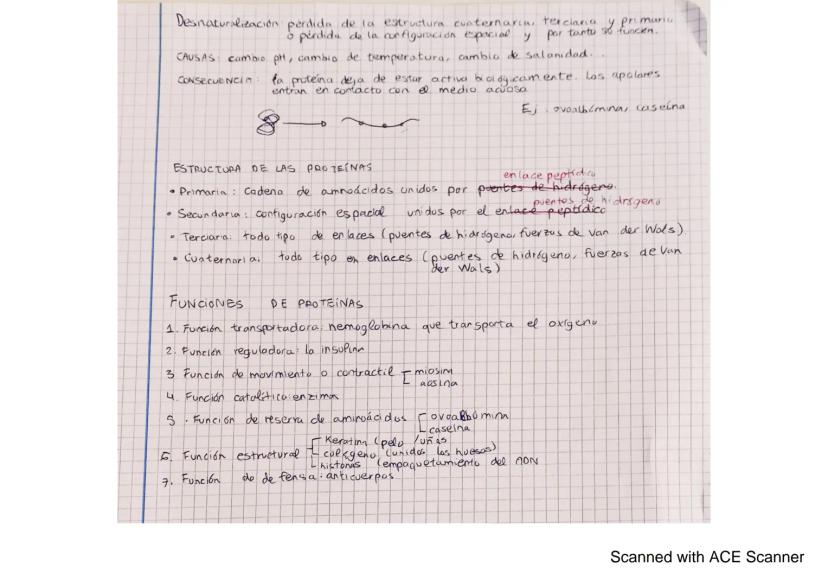 Desnaturalización: perdida de la estructura cuaternaria, terciaria y primaria
o pérdida de la configuración espacial y por tanto su función.
CAUSAS: cambio pH, cambio de temperatura, cambio de salinidad.
CONSECUENCIA: la proteína deja de estar activa biológicamente. Los apolares
entran en contacto con el medio acuosa
Ej: ovoalbúmina, caseína
ESTRUCTURA DE LAS PROTEÍNAS
enlace peptídico
• Primaria: Cadena de aminoácidos unidos por puentes de hidrógeno.
puentes de hidrógeno
• Secundaria: configuración espacial unidos por el enlace peptídico
• Terciaria: todo tipo de enlaces (puentes de hidrógeno, fuerzas de Van der Wals)
• Cuaternaria: todo tipo en enlaces (puentes de hidrógeno, fuerzas de Van
der Wals)
FUNCIONES DE PROTEÍNAS
1. Función transportadora: hemoglobina que transporta el oxígeno
2. Función reguladora: la insulina
3 Función de movimiento o contractil miosina
acsina
4. Función catalítica: enzima
5. Función de reserva de aminoácidos ovoalbúmina
caseína
Keratina (pelo/uñas
6. Función estructural colágeno (unidos los huesos)
histonas (empaquetamiento del ADN
7. Función de defensa: anticuerpos
Scanned with ACE Scanner